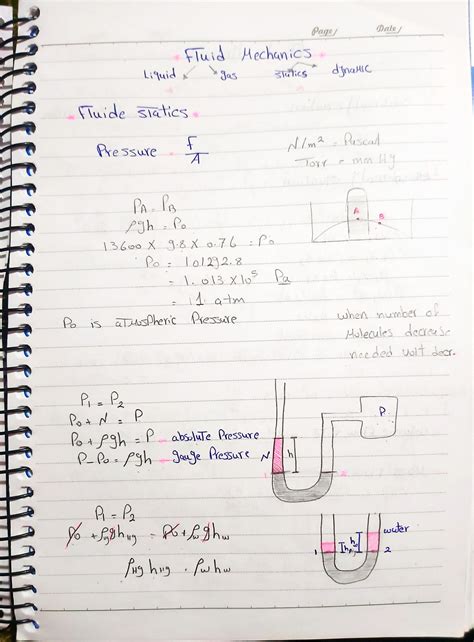 Page/ Date/
Fluid Mechanics
Liquid gas statics dynaMIC
Fluide statics
Pressure = F/A
N/m² = Pascal
Torr = mm Hg
A B
PA = PB
ρgh = Po
13600 x 9.8 x 0.76 = Po
Po = 101292.8
= 1.013 x 10⁵ Pa
= 1 atm
Po is atmospheric Pressure
when number of
Molecules decrease
needed volt decr.
P1 = P2
Po + N = P
Po + ρgh = P - absolute Pressure
P - Po = ρgh - gauge Pressure
N h 1 2 P
P1 = P2
Po + ρHg g hHg = Po + ρw g hw
ρHg hHg = ρw hw
water
hw
hHg
1 2